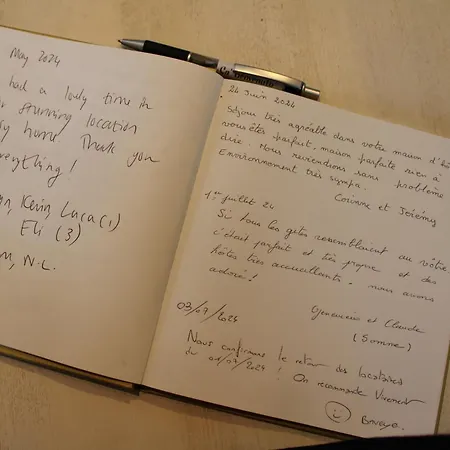 May 2024
had a lovely time in
stunning location
home Thank you
everything!
Kevin, Luca (1)
Eli (3)
N-L.
24 Juin 2024
Séjour très agréable dans votre maison d'hô
vous êtes parfait, maison parfaite rien à
dire. Nous reviendrons sans problème
Environnement très sympa.
Corinne et Jérémy
1er juillet 24.
Si tous les gites ressemblaient au vôtre
c'était parfait et très propre et des
hôtes très accueillants. nous avons
adoré!
Geneviève et Claude
(Somme)
03/07/2024
Nous confirmons le retour des locataires
du 01/07/2024 ! On recommande Vivement